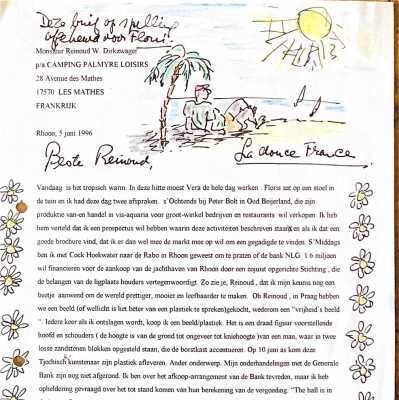 Deze brief op spelling
afgekeurd door Floris.
Monsieur Reinoud W. Dirkzwager
p/a CAMPING PALMYRE LOISIRS
28 Avenue des Mathes
17570 LES MATHES
FRANKRIJK
Rhoon, 5 juni 1996
Beste Reinoud,
La douce France
Vandaag is het tropisch warm. In deze hitte moest Vera de hele dag werken. Floris zat op een stoel in
de tuin en ik had deze dag twee afspraken. s'Ochtends bij Peter Bolt in Oud Beijerland, die zijn
produktie van-en handel in vis-aquaria voor groot-winkel bedrijven en restaurants wil verkopen. Ik heb
hem verteld dat ik een prospectus wil hebben waarin deze activiteiten beschreven staan en als ik dat een
goede brochure vind, dat ik er dan wel mee de markt mee op wil om een gegadigde te vinden. S'Middags
ben ik met Cock Hoekwater naar de Rabo in Rhoon geweest om te praten of de bank NLG 1 6 miljoen
wil financieren voor de aankoop van de jachthaven van Rhoon door een zojuist opgerichte Stichting, die
de belangen van de ligplaats houders vertegenwoordigt. Zo zie je, Reinoud, dat ik mijn kennis nog een
beetje aanwend om de wereld prettiger, mooier en leefbaarder te maken. Oh Reinoud, in Praag hebben
we een beeld (of wellicht is het beter van een plastiek te spreken)gekocht, wederom een "vrijheid's beeld
". Iedere keer als ik ontslagen wordt, koop ik een beeld/plastiek. Het is een draad figuur voorstellende
hoofd en schouders ( de hoogte is van de grond tot ongeveer tot kniehoogte )van een man, waar in twee
losse zandstenen blokken opgesteld staan, die de borstkast accentueren. Op 10 juni as kom deze
Tjechisch kunstenaar zijn plastiek afleveren. Ander onderwerp. Mijn onderhandelingen met de Generale
Bank zijn nog niet afgerond. Ik ben over het afkoop-arrangement van de Bank tevreden, maar ik heb
opheldering gevraagd over het tot stand komen van hun berekening van de vergoeding. "The ball is in